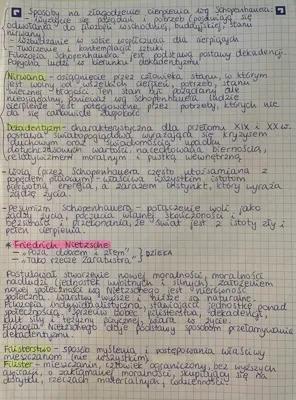 Sposoby na złagodzenie cierpienia wg Schopenhauera:
- wyzbycie się pożądań i potrzeb (podobnie jak
odwołania do filozofii wschodniej, buddyjskiej) stanu
nirwana
- wzbudzanie w sobie współczucia dla cierpiących
- Tworzenie i kontemplacja sztuki
Filozofia Schopenhauera jest podstawą postawy dekadenckiej.
ludzi w kierunku dekadentyzmu
Nirwana - osiągnięcie przez człowieka stanu, w którym
jest wolny od wszelkich cierpień, potrzeb, stanu
wiecznej błogości. Ten stan był pożądany ale
nieosiągalny, ponieważ wg Schopenhauera ludzkie
cierpienie jest potęgowane przez potrzeby, których nie
da się całkowicie zagłuszyć
Dekadentyzm - charakterystyczna dla przełomu XIX i XX w.
postawa światopoglądowa, wyrażająca się kryzysem
duchowym oraz świadomością upadku
dotychczasowych wartości, nacechowana biernością,
relatywizmem moralnym i pustką wewnętrzną.
- Wola (przez Schopenhauera często utożsamiana z
popędem płciowym) - właściwa wszystkim istotom
pierwotna energia, a zarazem instynkt, który wyraża
żądzę życia.
- pesymizm Schopenhauera - połączenie woli jako
żądzy życia, poczucia własnej skończoności i
bezsilności i przekonania, że świat jest z istoty zły i
pełen cierpienia.
* Friedrich Nietzsche
- „Poza dobrem i złem"
- „Tako rzecze Zaratustra" } DZIEŁA
Postulował stworzenie nowej moralności, moralności
nadludzi (jednostek wybitnych i silnych). założeniem
nowej społeczności wg Nietzschego jest nierówność
społeczna, warstwy wyższe i niższe są naturalne
Filozofia indywidualistyczna, stawiająca jednostkę ponad
społecznością. Sprzeciw wobec filisterstwa, dekadencji,
kult siły i tężyzny życiowej, wiara w życie.
Filozofia Nietzschego daje podstawy sposobem przełamywania
dekadentyzmu.
Filisterstwo - sposób myślenia i postępowania właściwy
mieszczanom (nie wszystkim).
Filister - mieszczanin, człowiek ograniczony, bez wyższych
aspiracji, o zakłamanej moralności, skupiający się na
dobytku, rzeczach materialnych, codzienności